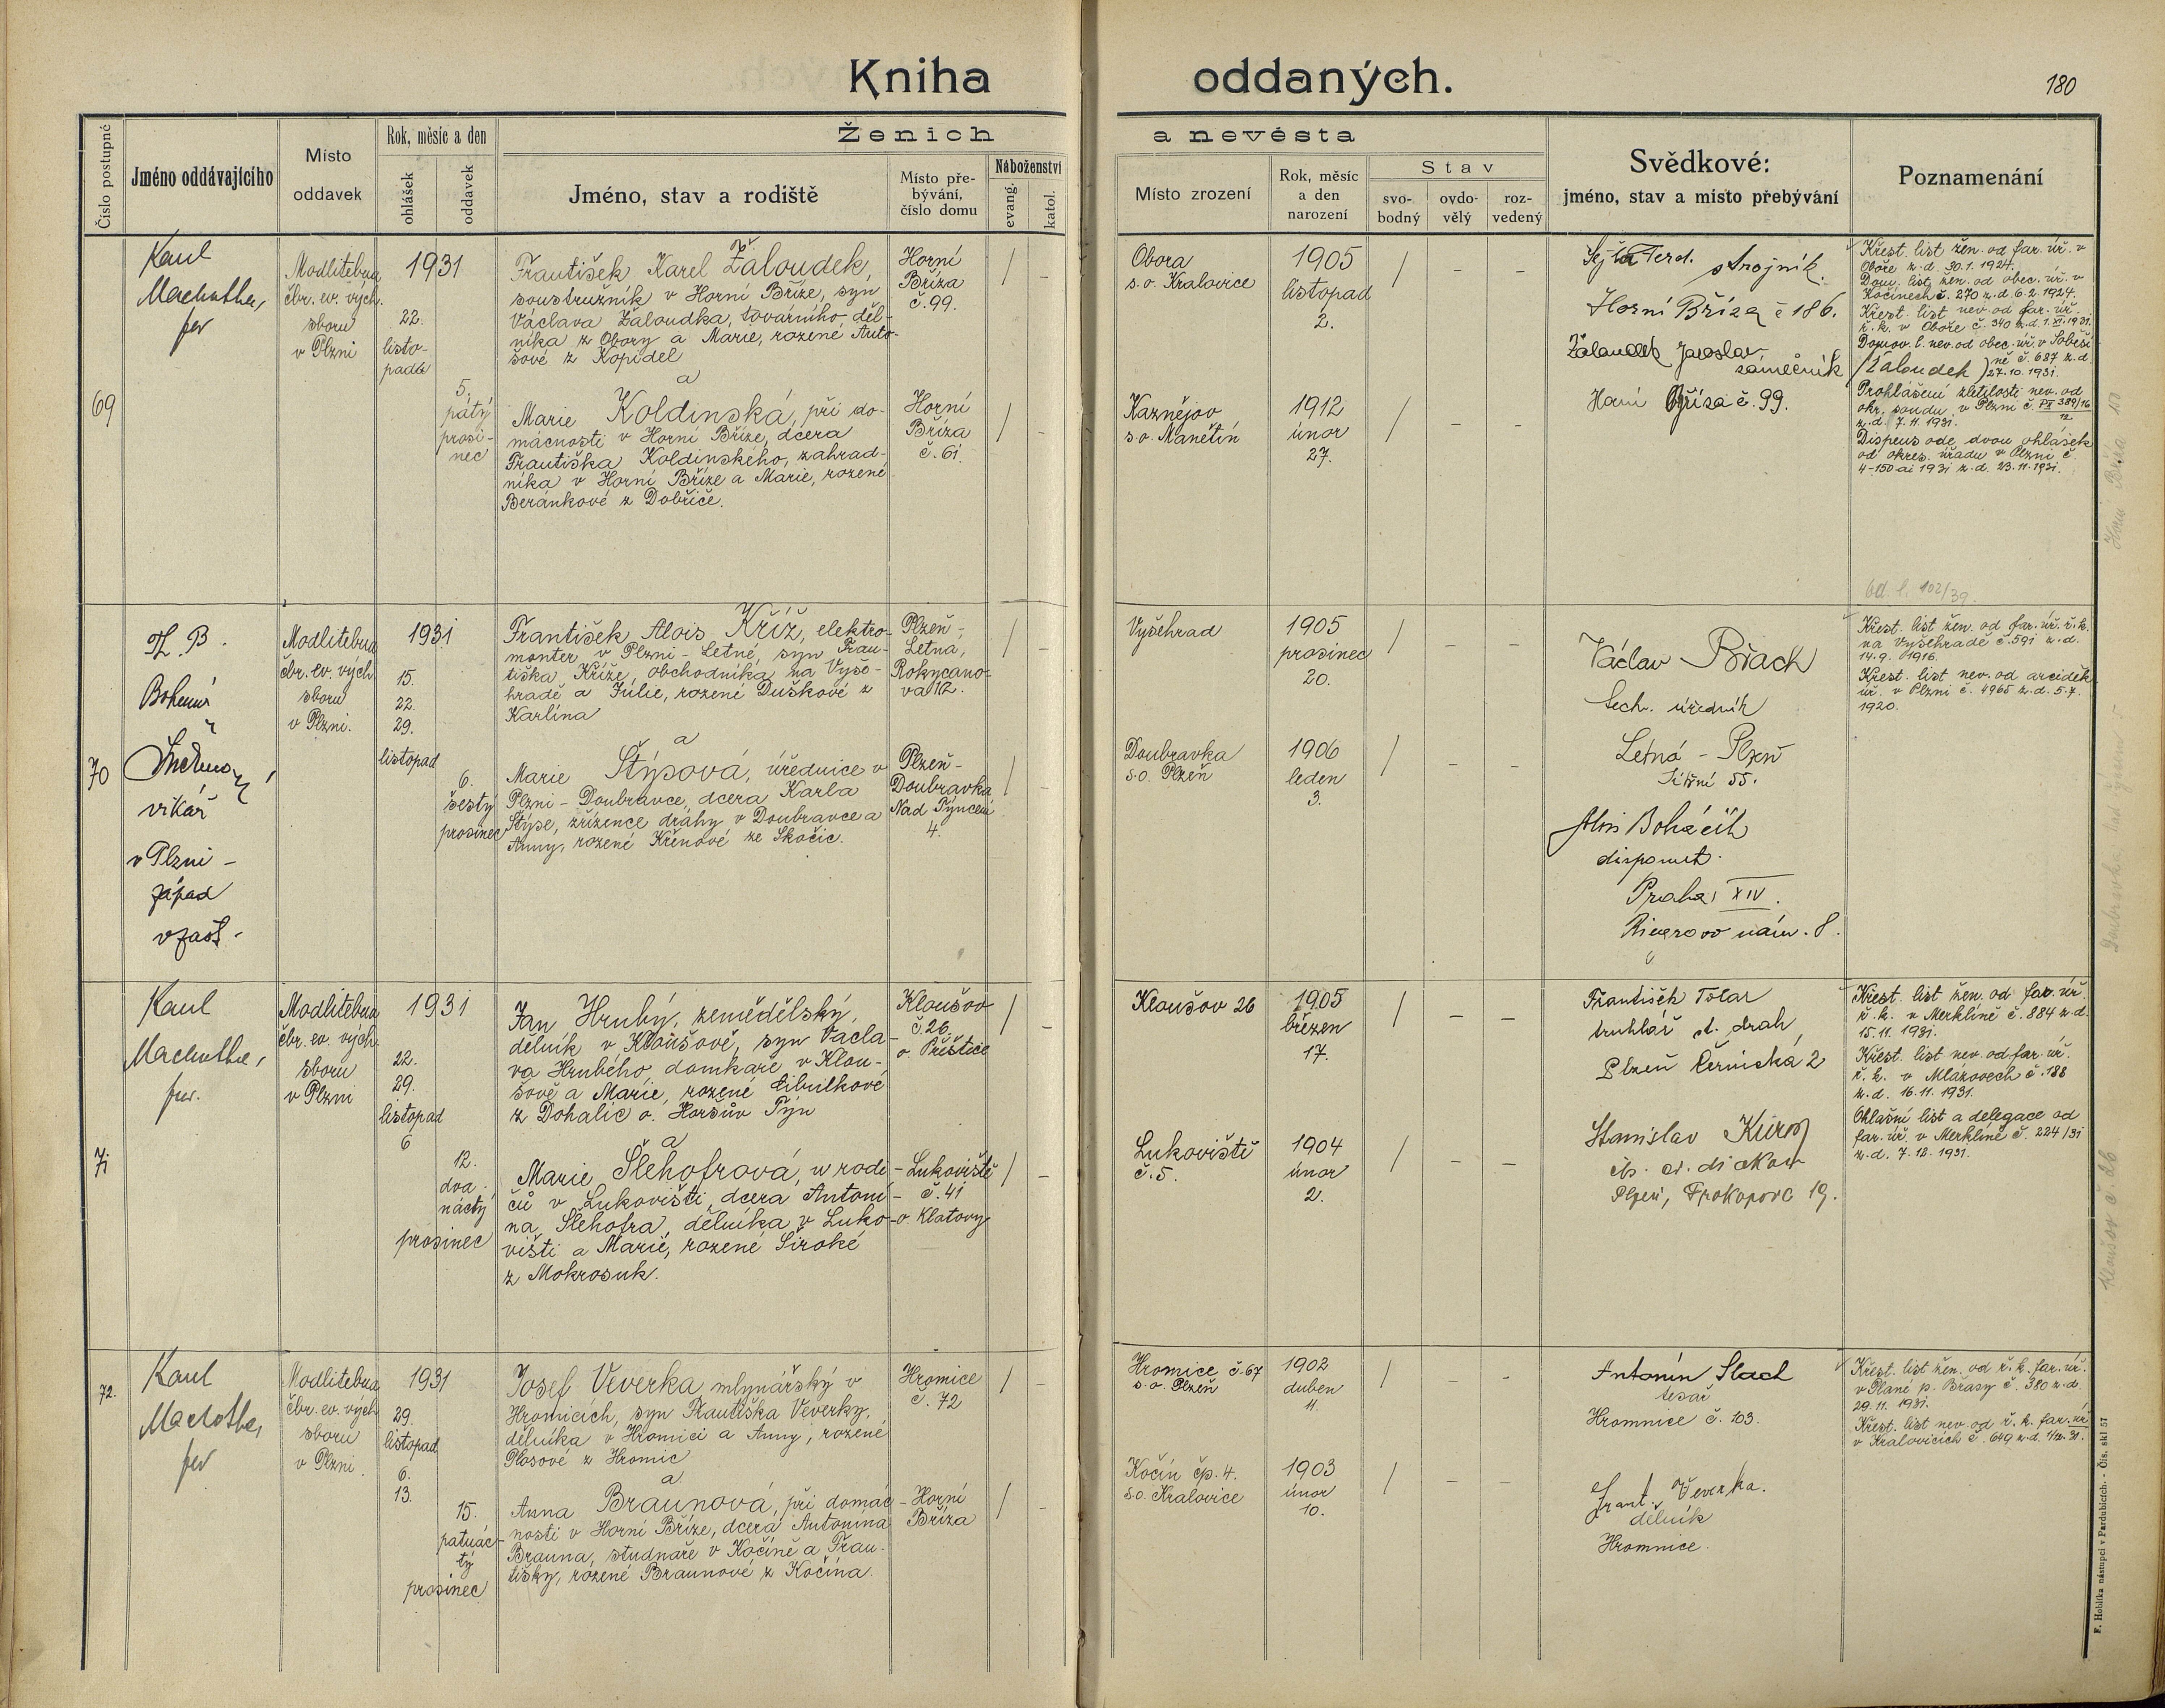 Kniha oddaných.
180
Číslo postupné
Jméno oddávajícího
Místo
oddavek
Rok, měsíc a den
ohlášek
oddavek
Ženich
a nevěsta
Jméno, stav a rodiště
Místo pře-
bývání,
číslo domu
Náboženství
evang.
katol.
Místo zrození
Rok, měsíc
a den
narození
Stav
svo-
bodný
ovdo-
vělý
roz-
vedený
Svědkové:
jméno, stav a místo přebývání
Poznamenání
69
Modlitebna
čbr. ev. vých.
sboru
v Plzni
1931
22.
listo-
padu
5.
pátý
prosi-
nec
František Karel Žaloudek,
soustružník v Horní Bříze, syn
Václava Žaloudka, továrního děl-
níka z Obory a Marie, rozené Anto-
šové z Kopidel
a
Marie Koldinská, při do-
mácnosti v Horní Bříze, dcera
Františka Koldinského, zahrad-
níka v Horní Bříze a Marie, rozené
Beránkové z Dobříče.
Horní
Bříza
č. 99.
Horní
Bříza
č. 61.
Obora
s.o. Kralovice
1905
listopad
2.
Kaznějov
s.o. Manětín
1912
únor
27.
Ferd. strojník.
Horní Bříza č 186.
Žaloudek Jaroslav
zámečník (Žaloudek)
Horní Bříza č. 99.
Křest. list žen. od far. úř. v
Oboře z. d. 30.1.1924.
Dom. list žen. od obec. úř. v
Kočínech č. 270 z. d. 6.2.1924.
Křest. list nev. od far. úř.
ř. k. v Oboře č. 340 z. d. 1. XI. 1931.
Domov. l. nev. od obec. úř. v Soběši-
ně č. 687 z. d.
27.10.1931.
Prohlášení zletilosti nev. od
okr. soudu v Plzni č. PX 389/16
12
z. d. 7.11.1931.
Dispens ode dvou ohlášek
od okres. úřadu v Plzni č.
4-150 ai 1931 z. d. 23.11.1931.
Od. l. 102/39.
70
Th. B.
vikář
v Plzni -
západ
v zast.
Modlitebna
čbr. ev. vých.
sboru
v Plzni.
1931
15.
22.
29.
listopad
6.
šestý
prosinec
František Alois Kříž, elektro-
monter v Plzni - Letné, syn Fran-
tiška Kříže, obchodníka na Vyše-
hradě a Julie, rozené Duškové z
Karlína
a
Marie Štýsová, úřednice v
Plzni - Doubravce, dcera Karla
Štýse, zřízence dráhy v Doubravce a
Anny, rozené Křenové ze Skočic.
Plzeň -
Letná,
Rokycano-
va 12.
Plzeň -
Doubravka
Nad Týncem
4.
Vyšehrad
1905
prosinec
20.
Doubravka
s.o. Plzeň
1906
leden
3.
Václav Brach
tech. úředník
Letná - Plzeň
55.
Alois Boháčík
disponent
Praha XIV.
Riegrovo nám. 8.
Křest. list žen. od far. úř. ř. k.
na Vyšehradě č. 591 z. d.
14.9.1916.
Křest. list nev. od arciděk.
úř. v Plzni č. 4965 z. d. 5.7.
1920.
71
Modlitebna
čbr. ev. vých.
sboru
v Plzni
1931
22.
29.
listopad
6
12.
dva-
náctý
prosinec
Jan Hrubý, zemědělský
dělník v Kloušově, syn Václa-
va Hrubého, domkaře v Klou-
šově a Marie, rozené Cibulkové
z Dohalic o. Horšův Týn
a
Marie Šlehofrová, u rodi-
čů v Lukovišti, dcera Antoni-
na Šlehofra, dělníka v Luko-
višti a Marie, rozené Široké
z Mokrosuk.
Kloušov
č. 26.
o. Přeštice
Lukoviště
č. 41
o. Klatovy
Kloušov 26
1905
březen
17.
Lukoviště
č. 5.
1904
únor
2.
František Tolar
truhlář st. drah
Plzeň Černická 2
Stanislav
diakon
Plzeň, Prokopova 19.
Křest. list žen. od far. úř.
ř. k. v Merklíně č. 884 z. d.
15.11.1931.
Křest. list nev. od far. úř.
ř. k. v Mlázovech č. 188
z. d. 16.11.1931.
Ohlašní list a delegace od
far. úř. v Merklíně č. 224/31
z. d. 7.12.1931.
72.
Modlitebna
čbr. ev. vých.
sboru
v Plzni
1931
29.
listopad
6.
13.
15.
patnác-
tý
prosinec
Josef Veverka mlynářský v
Hromicích, syn Františka Veverky,
dělníka v Hromici a Anny, rozené
Plosové z Hromic
a
Anna Braunová, při domác-
nosti v Horní Bříze, dcera Antonína
Brauna, studnaře v Kočíně a Fran-
tišky, rozené Braunové z Kočína.
Hromice
č. 72
Horní
Bříza
Hromice č. 67
s.o. Plzeň
1902
duben
4.
Kočín čp. 4.
s.o. Kralovice
1903
únor
10.
Antonín Slach
tesař
Hromnice č. 103.
Frant. Veverka.
dělník
Hromnice.
Křest. list žen. od ř. k. far. úř.
v Plané p. Břasy č. 380 z. d.
29.11.1931.
Křest. list nev. od ř. k. far. úř.
v Kralovicích č. 649 z. d.
Kloušov č. 26
F. Hoblíka nástupci v Pardubicích. - Čís. skl 57